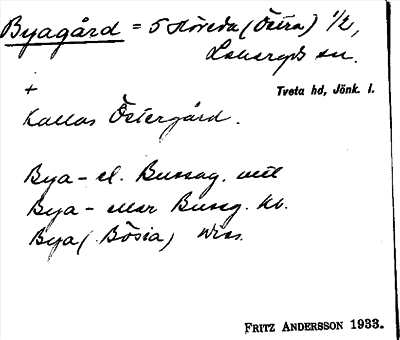 Byagård = 5 Höreda (Östra) 1/2,
Lekeryds sn.
+
Tveta hd, Jönk. l.
Kallas Östergård.
Bya- el. Bussag.
Bya- eller Busseg. kb.
Bya (Bösia)
FRITZ ANDERSSON 1933.